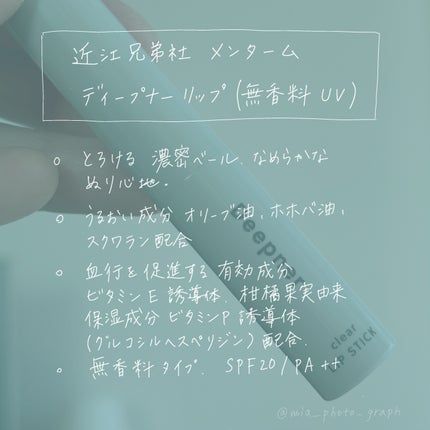 近江兄弟社 メンターム
ディープナーリップ(無香料 UV)
○ とろける 濃密ベール、なめらかな
ぬり心地。
○ うるおい成分 オリーブ油、ホホバ油、
スクワラン配合
○ 血行を促進する 有効成分
ビタミンE 誘導体、柑橘果実由来
保湿成分 ビタミンP 誘導体
(グルコシルヘスペリジン)配合.
○ 無香料タイプ. SPF20/PA++
deepner
clear
LIP STICK
@mia_photo_graph